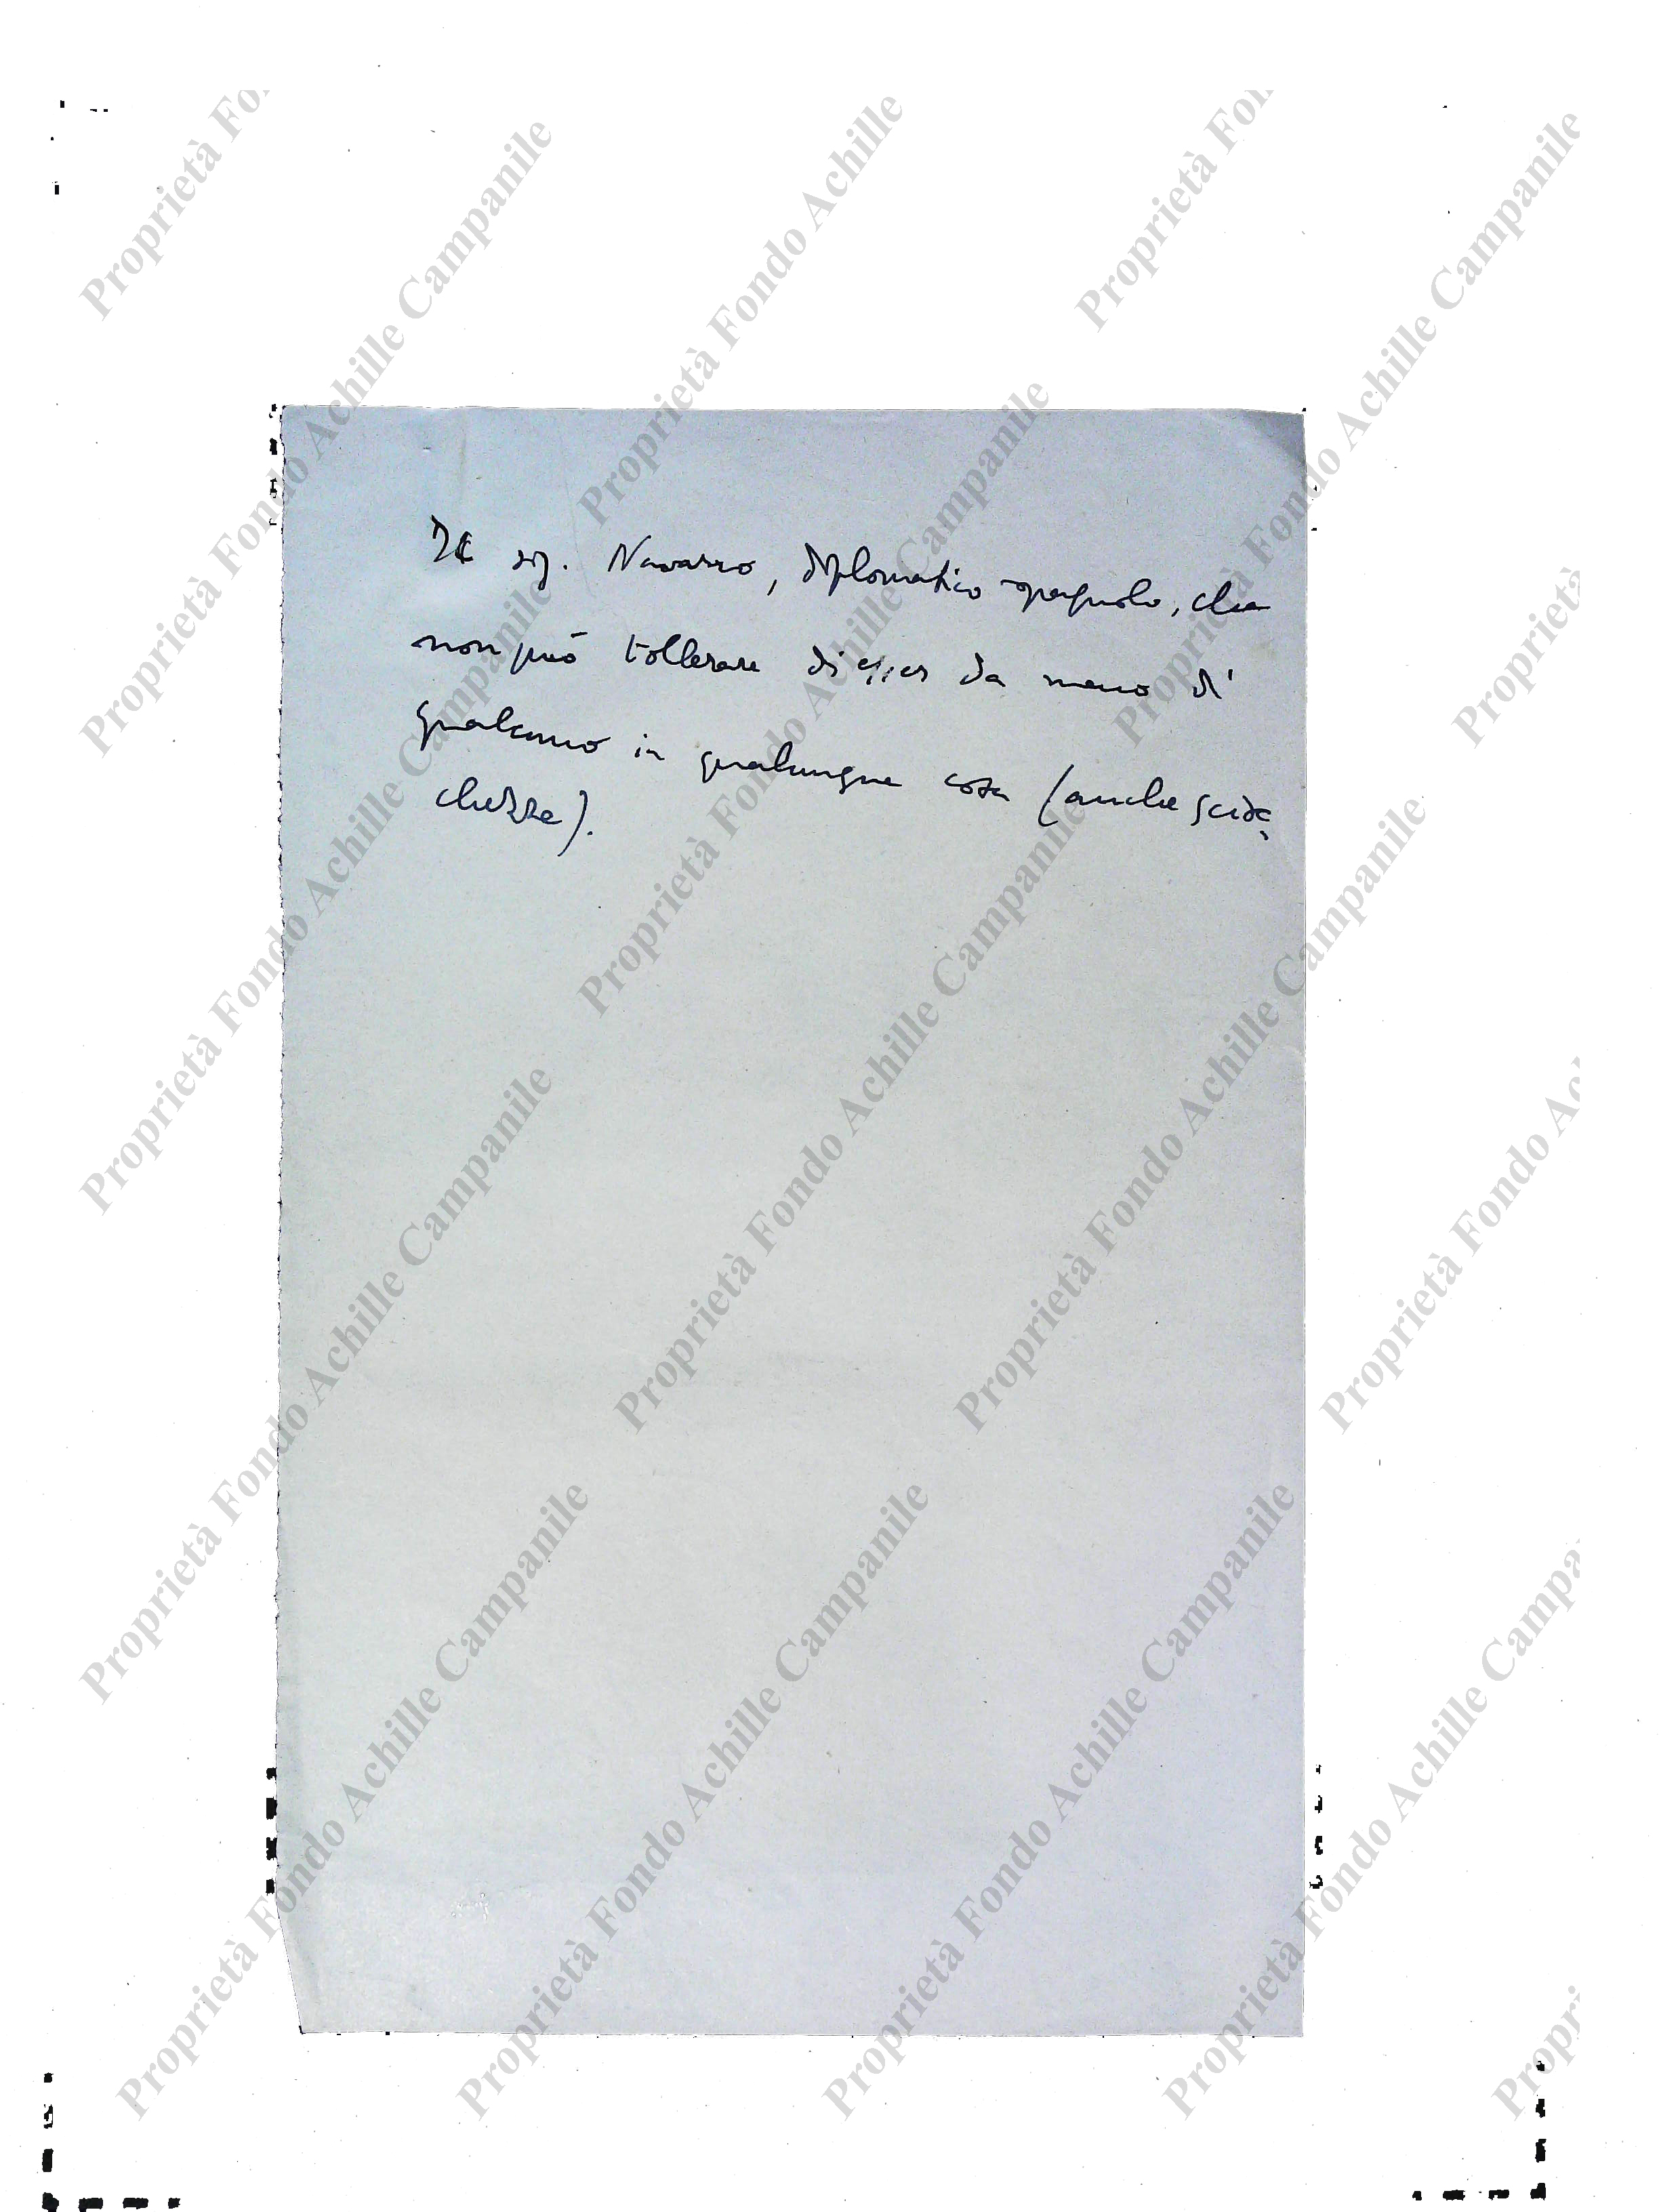 Il sig. Navarro, diplomatico spagnolo, che
non può tollerare di esser da meno di
qualcuno in qualunque cosa (anche scioc
chezze).
Proprietà Fondo Achille Campanile